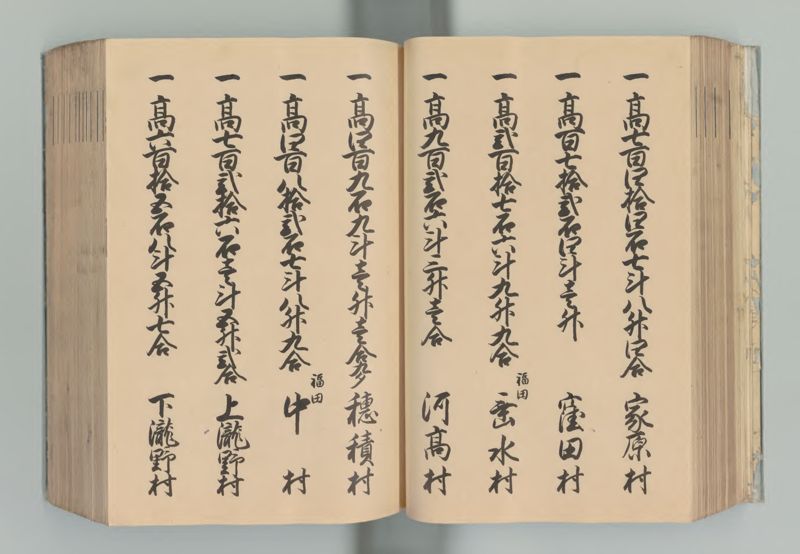 一高七百四拾四石七斗八升四合 家原村
一高百七拾弐石四斗壱升 窪田村
一高弐百拾七石六斗九升九合 福田 垂水村
一高九百弐石六斗二升壱合 河高村
一高四百九石九斗壱升壱合 穂積村
一高四百八拾弐石七斗八升九合 福田 中村
一高七百弐拾六石壱斗五升弐合 上瀧野村
一高六百拾五石八斗五升七合 下瀧野村